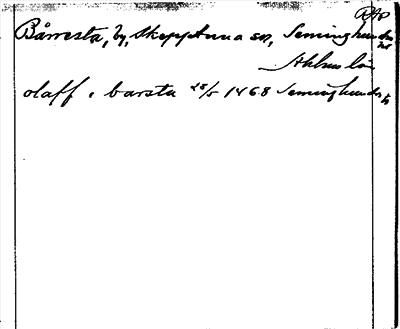 RAP
Bårresta, by, Skepptuna sn, Seminghundra hd
Sthlms län
olaff i barsta 28/5 1468 Seminghundra h